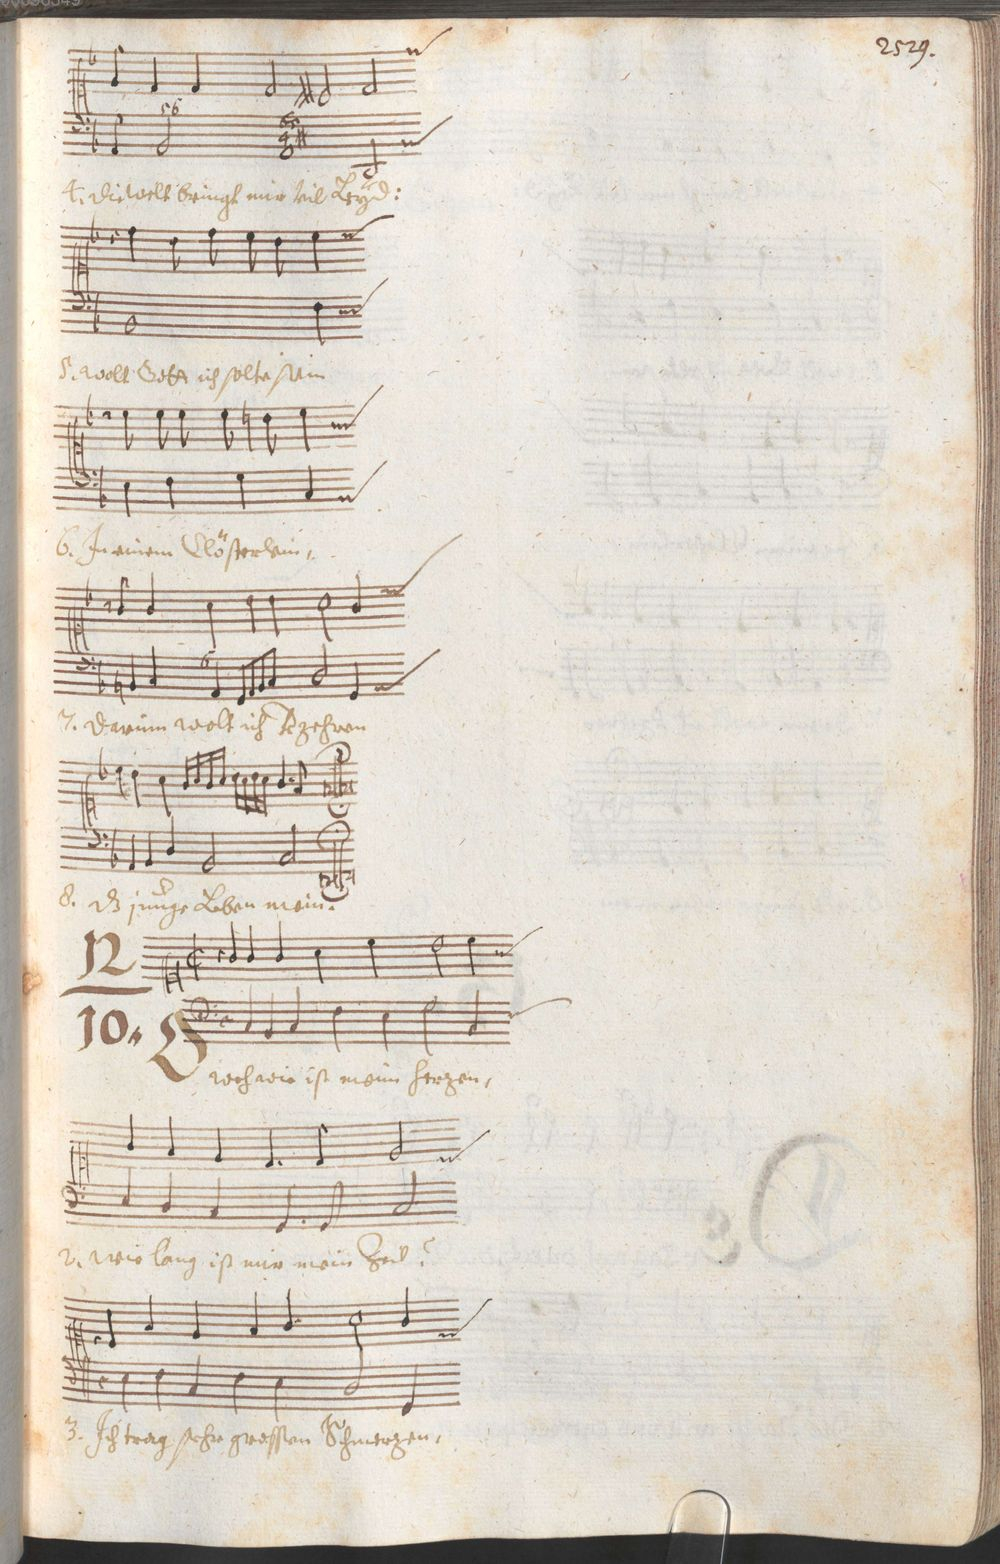 2529.
56
4. die welt bringt mir vil Leyd:
5. wolt Gott ich solte sein
6. In einem Clösterlein,
6
7. Darinn wolt ich
8. dz junge Leben mein.
12
10. O weh wie ist meim Herzen,
2. wie lang ist mir mein Zeit?
3. Ich trag sehr grossen Schmerzen,